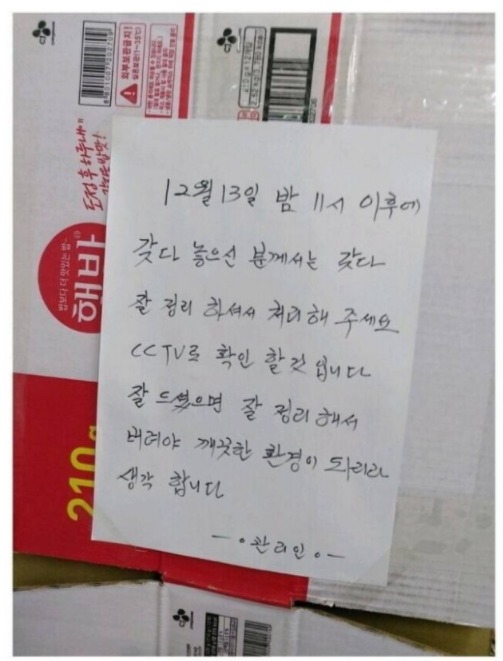 12월 13일 밤 11시 이후에
갖다 놓으신 분께서는 갖다
잘 정리 하셔서 처리해 주세요
CCTV로 확인 할것 입니다
잘 드셨으면 잘 정리해서
버려야 깨끗한 환경이 되리라
생각 합니다
관리인
햇반
210g
CJ
외부보관금지!